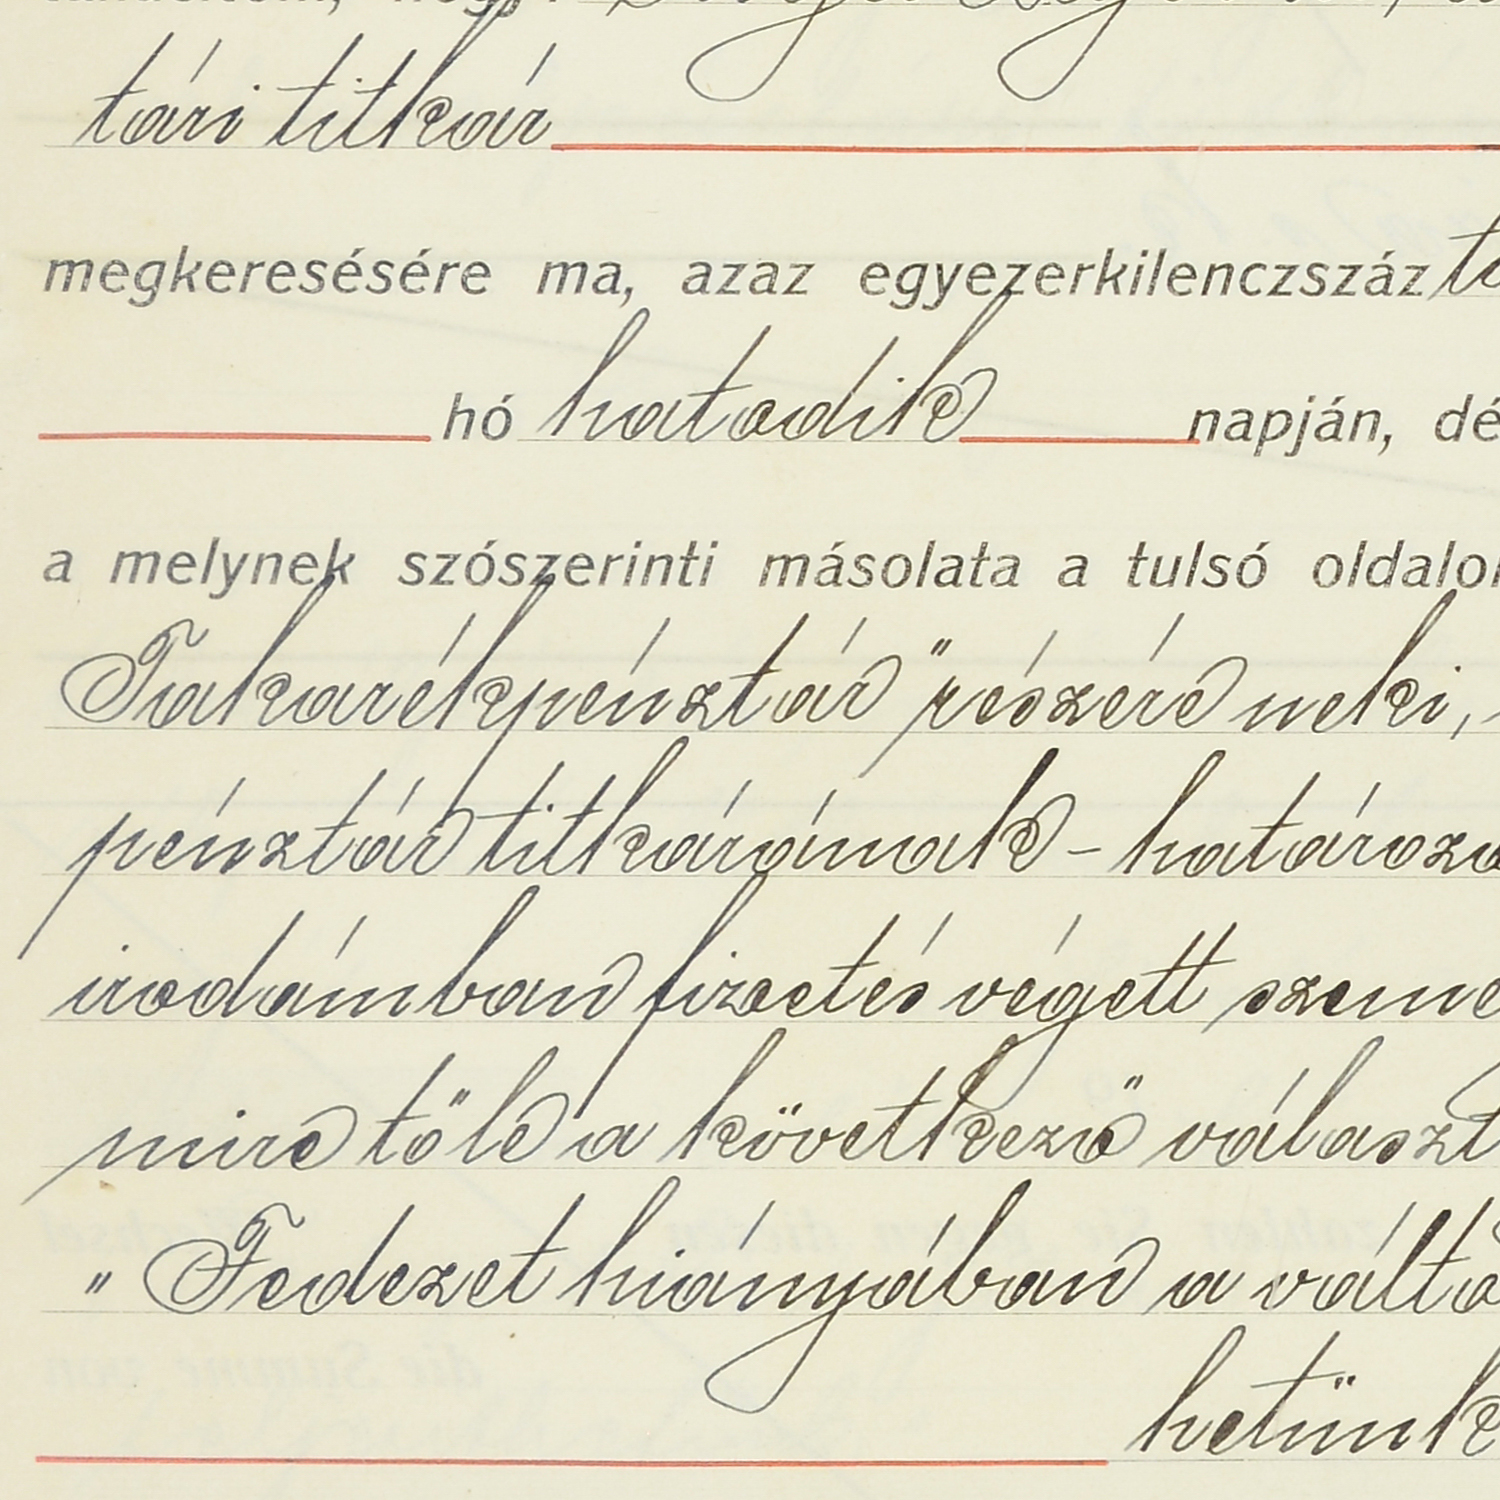 tári titkár
megkeresésére ma, azaz egyezerkilenczszáz
hó hatodik napján, dé
a melynek szószerinti másolata a tulsó oldalon
Takarékpénztár" részére neki,
pénztár titkárának - határoza
irodámban fizetés végett szeme
mire tőle a következő választ
"Fedezet hiányában a váltó
hetünk